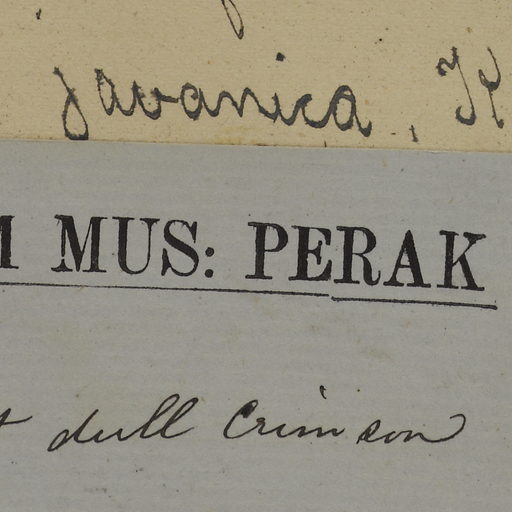 javanica, K
M MUS: PERAK
t dull Crimson